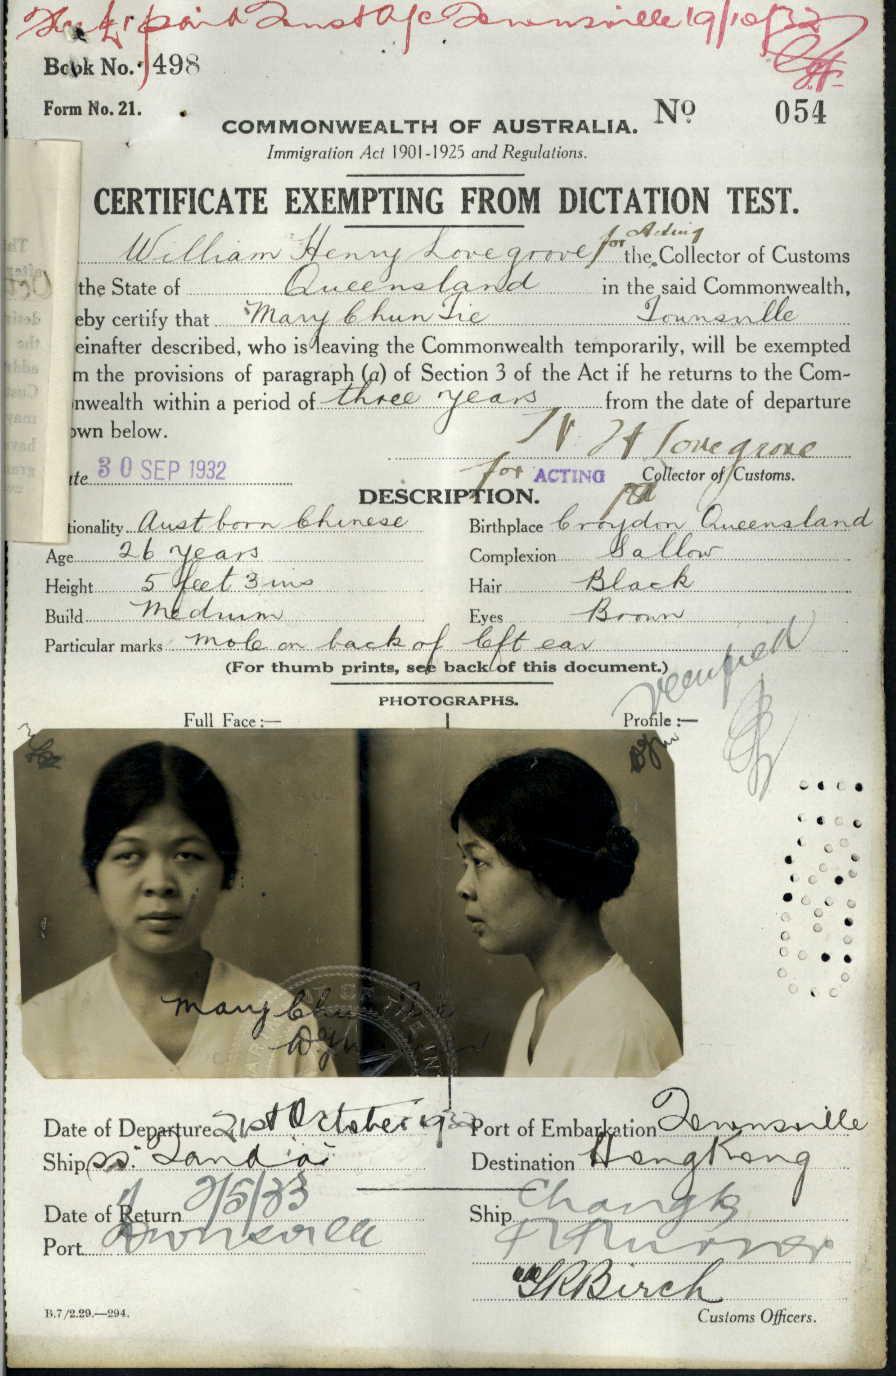 paid Trust A/c Townsville 19/10/32
Book No. 498
Form No. 21.
No 054
COMMONWEALTH OF AUSTRALIA.
Immigration Act 1901-1925 and Regulations.
CERTIFICATE EXEMPTING FROM DICTATION TEST.
William Henry Lovegrove for Acting the Collector of Customs
the State of Queensland in the said Commonwealth,
eby certify that Mary Chun Tie Townsville
einafter described, who is leaving the Commonwealth temporarily, will be exempted
m the provisions of paragraph (a) of Section 3 of the Act if he returns to the Com-
nwealth within a period of three years from the date of departure
own below.
W H Lovegrove
te 30 SEP 1932 for ACTING Collector of Customs.
DESCRIPTION.
tionality Aust born Chinese Birthplace Croydon Queensland
Age 26 years Complexion Sallow
Height 5 feet 3 ins Hair Black
Build Medium Eyes Brown
Particular marks mole on back of left ear
(For thumb prints, see back of this document.)
PHOTOGRAPHS.
Full Face :— Profile :—
Mary Chun Tie
Date of Departure 21st October 1932 Port of Embarkation Townsville
Ship ss. Tanda Destination Hong Kong
Date of Return 2/5/33 Ship Changte
Port Townsville
Birch
B.7/2.29.—294. Customs Officers.